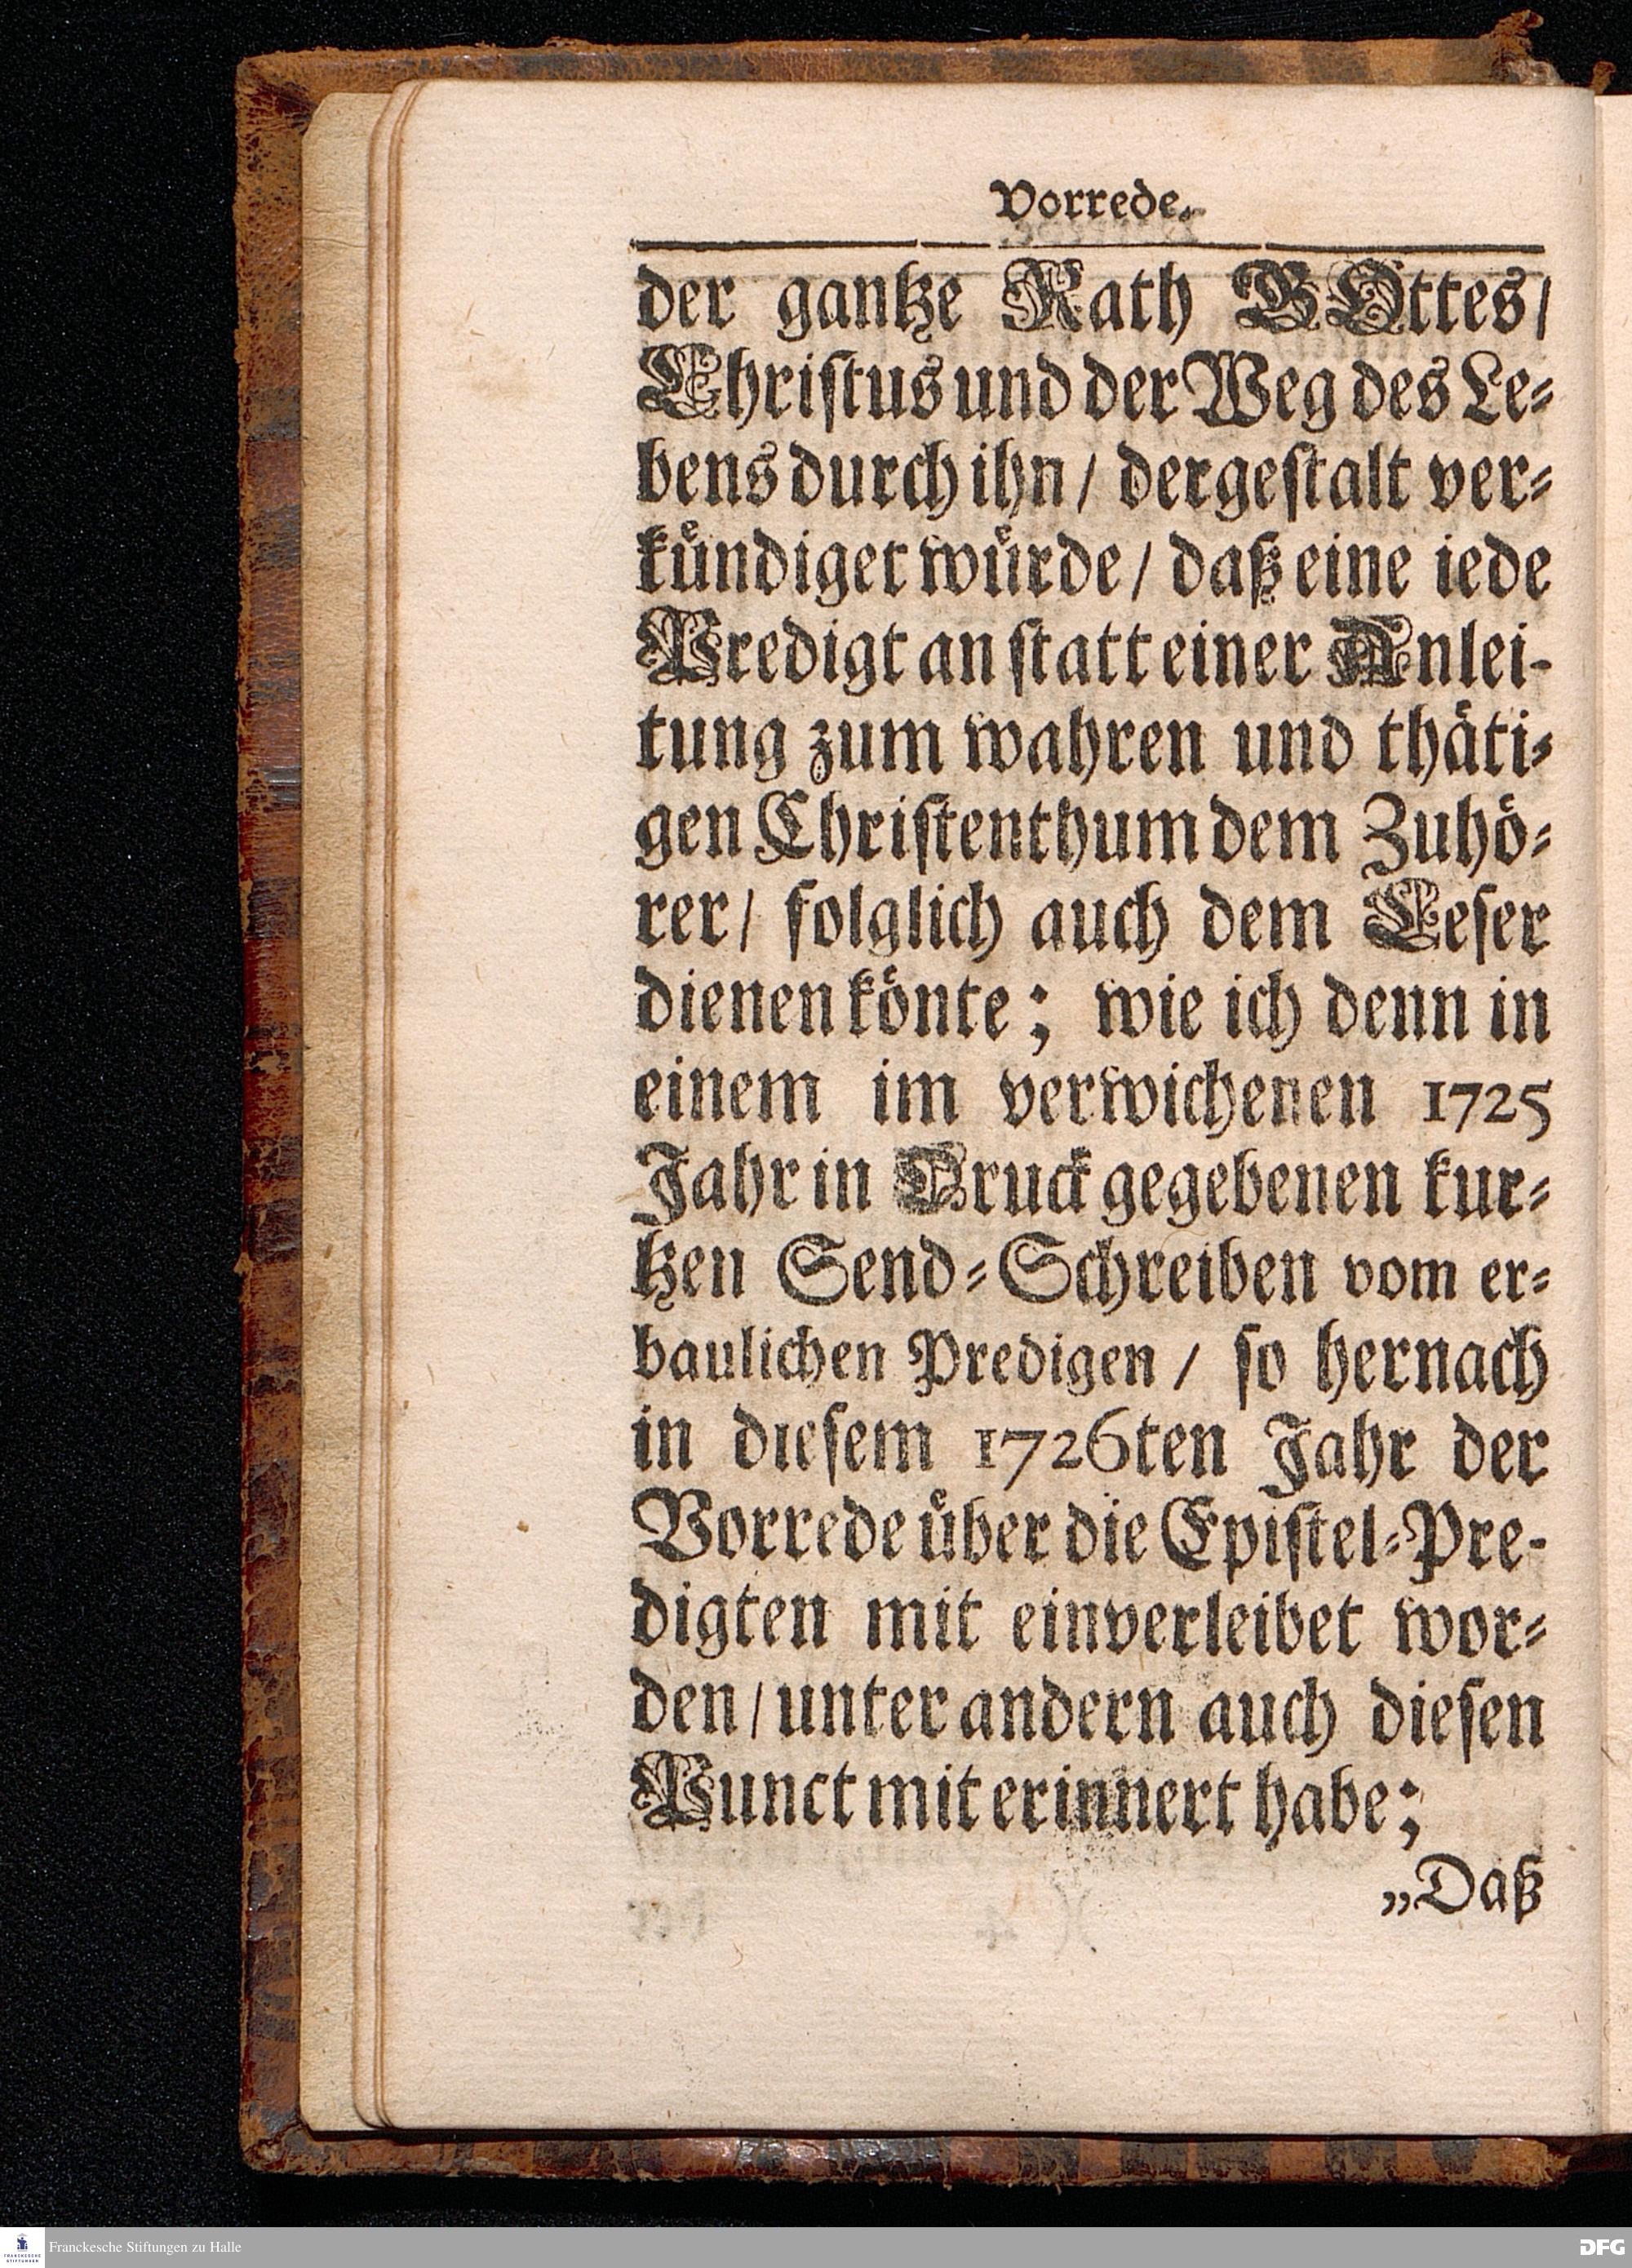 Vorrede.
der gantze Rath GOttes/
Christus und der Weg des Le⸗
bens durch ihn/ dergestalt ver⸗
kuͤndiget wuͤrde/ daß eine iede
Predigt an statt einer Anlei-
tung zum wahren und thaͤti⸗
gen Christenthum dem Zuhoͤ⸗
rer/ folglich auch dem Leser
dienen koͤnte; wie ich denn in
einem im verwichenen 1725
Jahr in Druck gegebenen kur⸗
tzen Send⸗Schreiben vom er⸗
baulichen Predigen/ so hernach
in diesem 1726ten Jahr der
Vorrede uͤber die Epistel⸗Pre-
digten mit einverleibet wor⸗
den/ unter andern auch diesen
Punct mit erinnert habe;
„Daß
FRANCKESCHE
STIFTUNGEN
Franckesche Stiftungen zu Halle
DFG